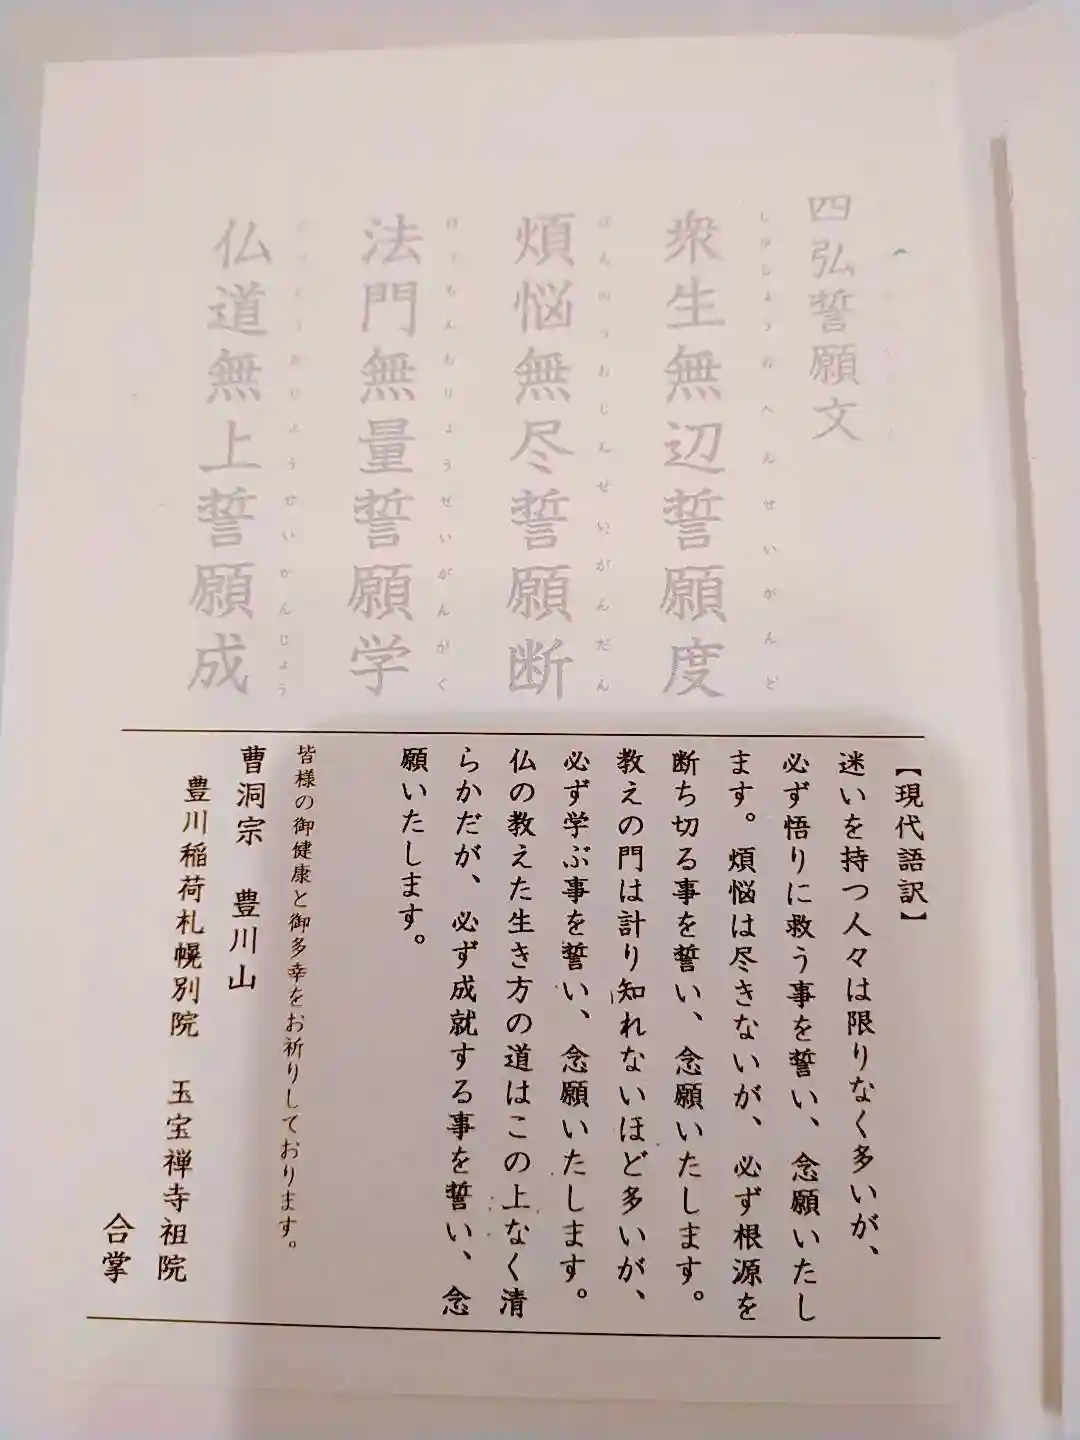 四弘誓願文
しゅじょうむへんせいがんど
衆生無辺誓願度
ぼんのうむじんせいがんだん
煩悩無尽誓願断
ほうもんむりょうせいがんがく
法門無量誓願学
ぶつどうむじょうせいがんじょう
仏道無上誓願成
【現代語訳】
迷いを持つ人々は限りなく多いが、
必ず悟りに救う事を誓い、念願いたし
ます。煩悩は尽きないが、必ず根源を
断ち切る事を誓い、念願いたします。
教えの門は計り知れないほど多いが、
必ず学ぶ事を誓い、念願いたします。
仏の教えた生き方の道はこの上なく清
らかだが、必ず成就する事を誓い、念
願いたします。
皆様の御健康と御多幸をお祈りしております。
曹洞宗 豊川山
豊川稲荷札幌別院 玉宝禅寺祖院
合掌